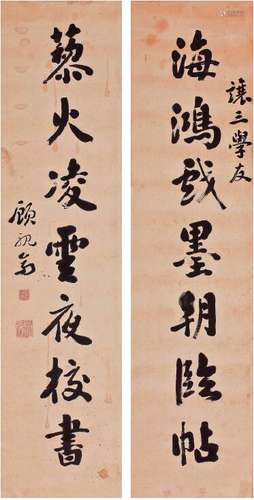 讓三學友
海鴻戲墨朝臨帖
藜火凌雲夜校書
顧視高